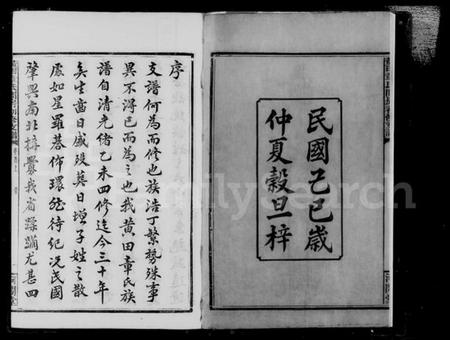 民國己巳歲
仲夏穀旦梓
序
支譜何為而修也族浩丁繁勢殊事
異不得已而為之也我黃田章氏族
譜自清光緒乙未四修迄今三十年
矣生齒日盛歿葬日增子姓之散
處如星羅碁佈環
待紀况民國
肇興南北搆釁我省蹂躪尤甚四
FamilySearch